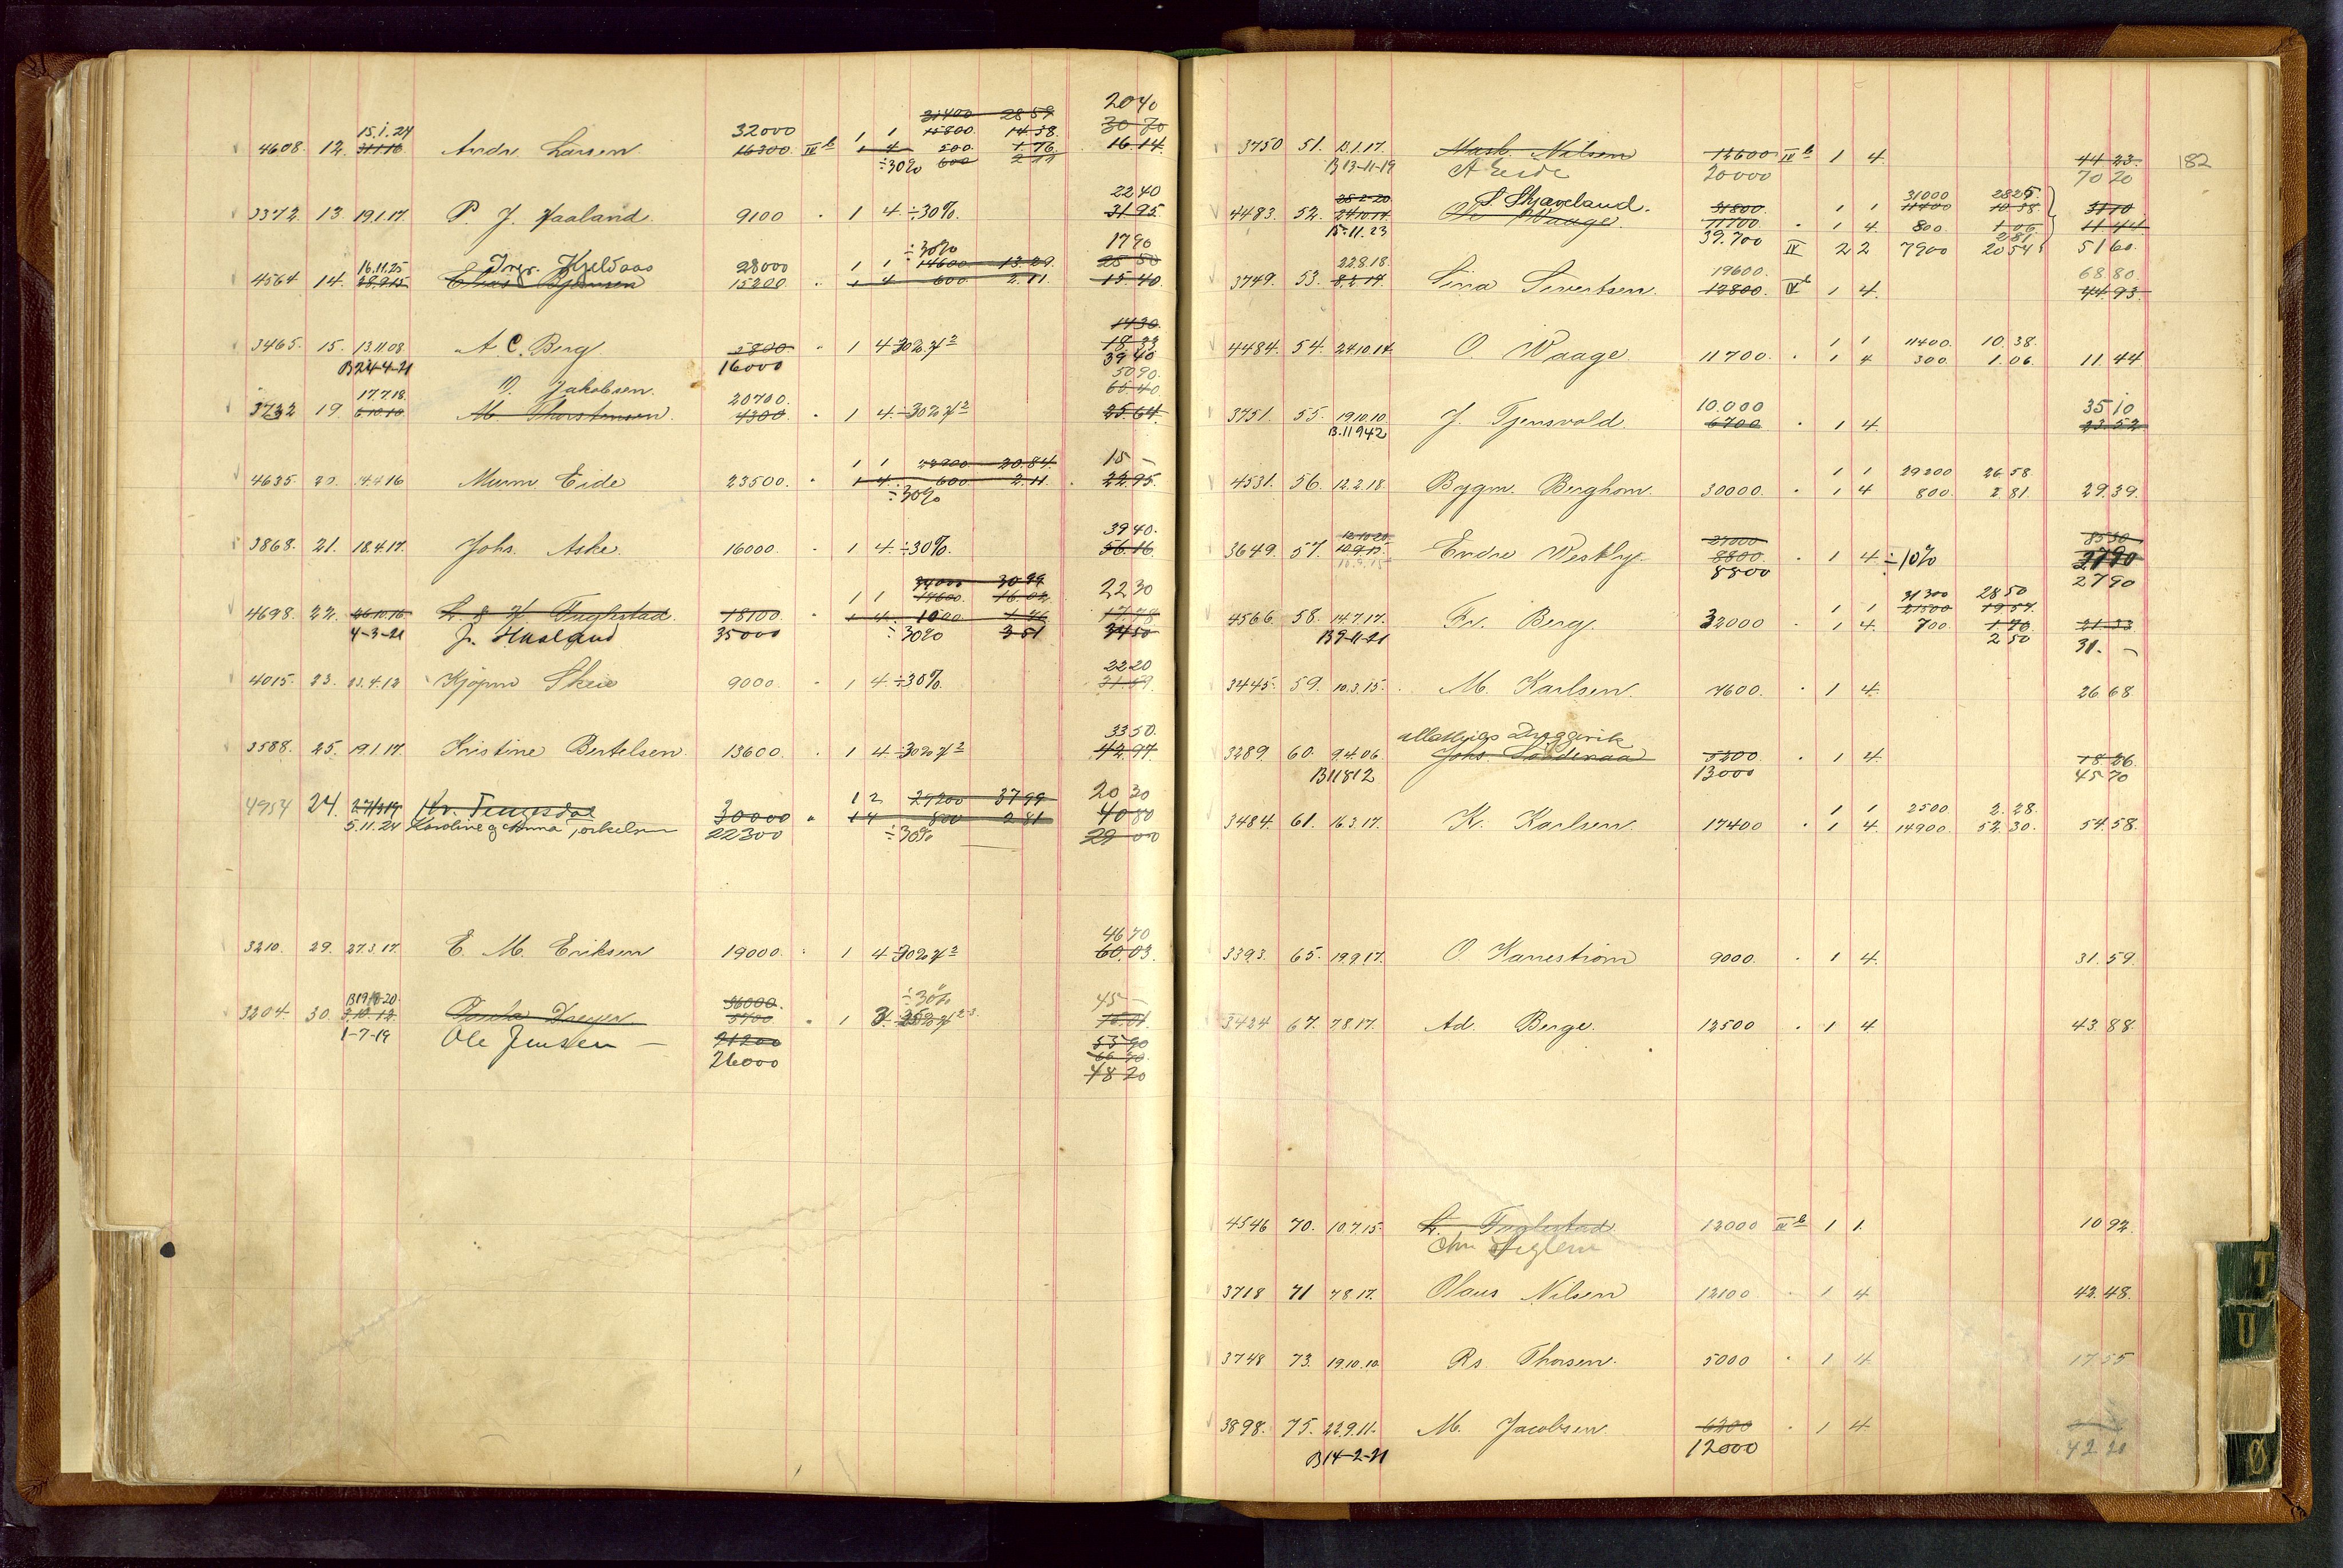 31400 28 59 2040
15.1.24 32000 1 1 15800 14 38 30 70
4608. 12. 31.1.16 Andr. Larsen. 16300. IV b 1 4 500. 1 76 16.14.
÷30% 600 2 11
2240
3372. 13. 19.1.17. P. J. Haaland. 9100 1 4 ÷30%. 31 95.
÷30% 1790
16.11.25 Ingr. Kjeldaas 28000 1 1 14600 13.29 25 80
4564 14. 28.9.15 15200 1 4 600 2.11 15.40.
1430.
3465. 15. 13.11.08. A. C. Berg 5800 1 4 ÷30%
B 24-4-21 16000 39 40
50 90.
17.7.18. Jakobsen. 20700. 65 40
3732 19. 6.10.10 M. Thorstensen. 4300 1 4 ÷30% 25.64.
1 1 22900 20.84. 15 -
4635. 20. 14.4.16 Murm. Eide 23500. 1 4. 600 2.11. 22.95.
÷30%
39 40.
3868. 21. 18.4.17. Johs. Aske. 16000. 1 4. ÷30%. 56.16.
34000 30 94
1 1 22 30
4698. 22. 26.10.16 L. & H. Fuglestad. 18100 1 4 1000 17.78
4-3-21 J. Husland 35000 ÷30% 3 51 34 50
22 20
4015. 23. 23.4.12 Kjøpm Skeie 9000. 1 4 ÷30%. 31.59.
33 50.
3588. 25. 19.1.17. Kristine Bertelsen. 13600. 1 4 ÷30% 42.97.
1 2 29200 37 99 20 30
4954 24. Kr. Tengesdal 30000 1 4 800 2 81 40 80
5.11.24 Karoline og Anna Torkelsen 22300 ÷30% 29 00
46 70
3210. 29. 27.3.17. E. M. Eriksen 19000. 1 4 ÷30% 60.03.
÷30% 45 -
3204. 30. 3.12.12. 1 3
1-7-19 Ole Jensen - 53 90
26000 48 20
182
3750 51. 13.1.17. Mask. Nilsen 12600 IV b 1 4. 44 23.
B 13-11-19 A Eeide 20000 70 20
28-2-20 S. Skjæveland. 31800. 1 1 31000 28 25
4483. 52. 24.10.14 O. Waage. 11700 1 4. 800. 1.06 11.44
15.11.23 39.700 IV 2 2 7900 20 54 51 60.
22.8.18. 19600. 68.80.
3749. 53. 8.2.14. Sina Sivertsen. 12800. IV b 1 4. 44 93.
1 1 11400. 10.38.
4484. 54. 24.10.14. O. Waage. 11700. 1 4 300. 1.06. 11.44
10.000 35 10
3751. 55. 19.10.10. J. Tjensvold. 6700 1 4. 23.52
B.11942
1 1 29200 26.58.
4531. 56. 12.2.18. Bygm. Berghom. 30000. 1 4 800. 2.81. 29.39.
12.10.20. 27000 85 30
3649. 57. 10.9.15. Endre Vestby. 8800 1 4 ÷10% 27 90
8800 27 90
1 1 31300 28 50
21500 19.57.
4566. 58. 14.7.17. Fr. Berg. 32000 1 4. 700. 1.76 21.33
B 9-11-21 2 50 31. -
3445. 59. 10.3.15. M. Karlsen. 7600. 1 4. 26.68.
Mathias Dreggevik
3289 60. 9.4.06 Johs. Lodenaa 5200 1 4. 18.26
B 11812 13000 45 70
1 1 2500. 2.28.
3484. 61. 16.3.17. K. Karlsen. 17400 1 4. 14900. 52.30. 54.58.
3393. 65. 19.9.17. O. Kanestrøm 9000. 1 4. 31.59.
3424 67. 7.8.17. Ad. Berge. 12500 1 4 43.88.
4546 70. 10.7.15. L. Fuglestad 12000 IV b 1 1. 10 92.
3718 71 7.8.17. Olaus Nilsen 12100 1 4 42.48.
3748 73. 19.10.10. Rs. Thorsen. 5000 1 4. 17 55
3898. 75. 22.9.11. M. Jacobsen 6300 1 4.
B 14-2-21 12000 42.20
T
U
Ø